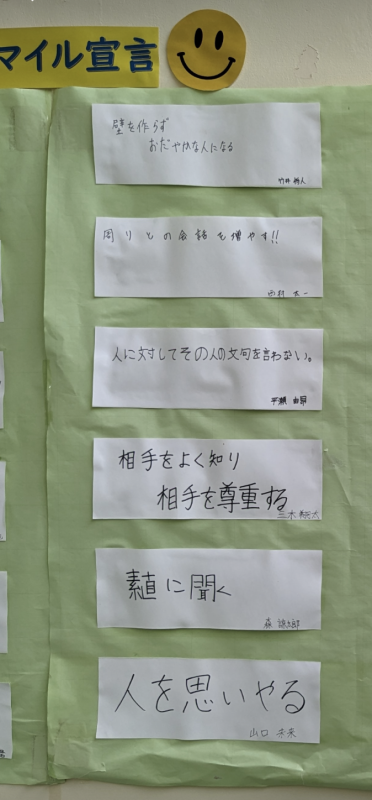 マイル宣言
壁を作らず
おだやかな人になる
竹井
周りとの会話を増やす!!
西村 太一
人に対してその人の文句を言わない。
平瀬
相手をよく知り
相手を尊重する
三木
素直に聞く
森
人を思いやる
山口 未来